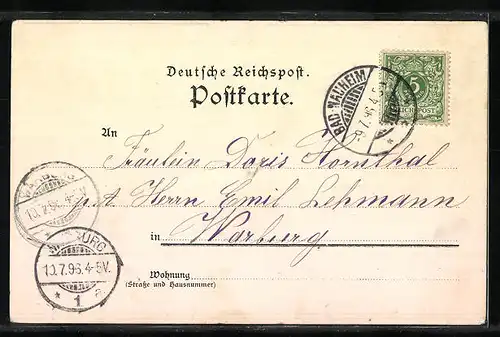 Deutsche Reichspost.
Postkarte.
BAD-NAUHEIM
9.7.96.4-5
5
POST
An
Fräulein Doris Hornthal
p. A. Herrn Emil Lehmann
in Warburg
10.7.96.4-5V.
BURG
10.7.96.4-5V.
* 1 a
Wohnung
(Straße und Hausnummer)